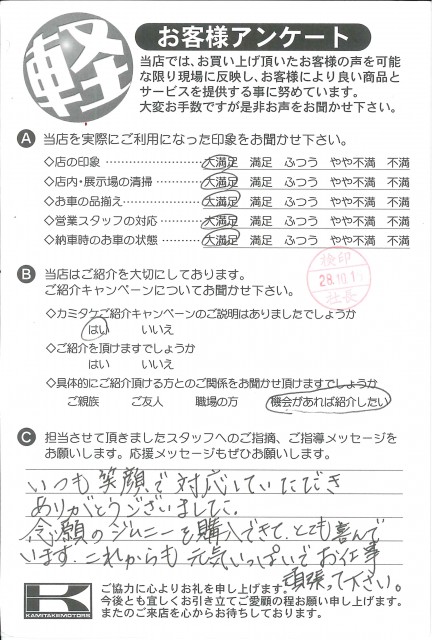 軽
お客様アンケート
当店では、お買い上げ頂いたお客様の声を可能
な限り現場に反映し、お客様により良い商品と
サービスを提供する事に努めています。
大変お手数ですが是非お声をお聞かせ下さい。
A 当店を実際にご利用になった印象をお聞かせ下さい。
◇店の印象 ………………… 大満足 満足 ふつう やや不満 不満
◇店内・展示場の清掃 ………… 大満足 満足 ふつう やや不満 不満
◇お車の品揃え ……………… 大満足 満足 ふつう やや不満 不満
◇営業スタッフの対応 ………… 大満足 満足 ふつう やや不満 不満
◇納車時のお車の状態 ………… 大満足 満足 ふつう やや不満 不満
検印
28.10.1
社長
B 当店はご紹介を大切にしております。
ご紹介キャンペーンについてお聞かせ下さい。
◇カミタケご紹介キャンペーンのご説明はありましたでしょうか
はい いいえ
◇ご紹介を頂けますでしょうか
はい いいえ
◇具体的にご紹介頂ける方とのご関係をお聞かせ頂けますでしょうか
ご親族 ご友人 職場の方 機会があれば紹介したい
C 担当させて頂きましたスタッフへのご指摘、ご指導メッセージを
お願いします。応援メッセージもぜひお願いします。
いつも笑顔で対応していただき
ありがとうございました。
念願のジムニーを購入できて、とても喜んで
います。これからも元気いっぱいでお仕事
頑張って下さい。
K
KAMITAKEMOTORS
ご協力に心よりお礼を申し上げます。
今後とも宜しくお引き立てご愛顧の程お願い申し上げます。
またのご来店を心からお待ちしております。